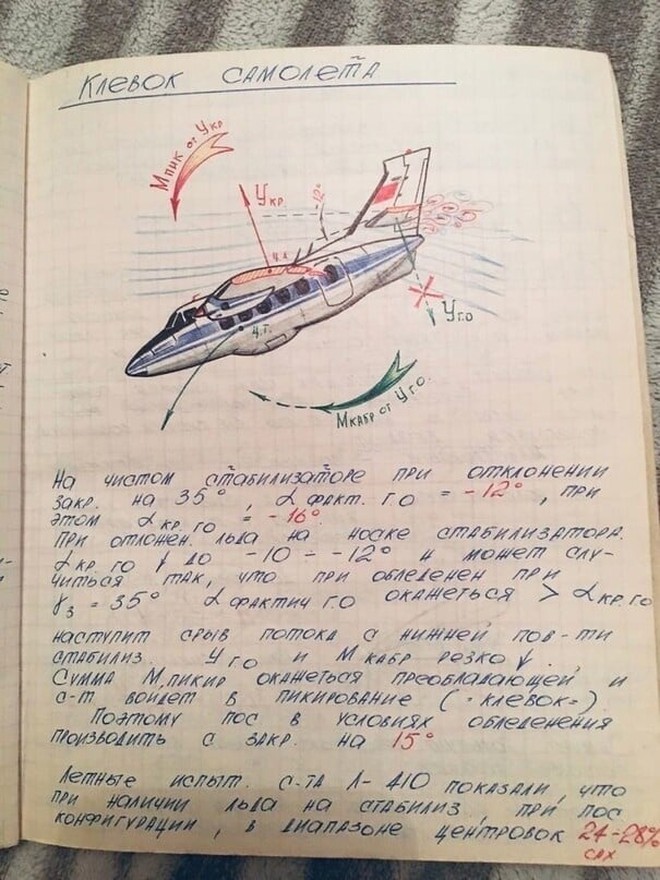 Клевок самолета
Мпик от Укр
Укр
-12°
ц.д.
ц.т.
Уг.о
Мкабр от Уг.о.
На чистом стабилизаторе при отклонении
закр. на 35°, α факт. г.о = -12°, при
этом α кр. г.о = -16°.
При отложен. льда на носке стабилизатора.
α кр. го ↓ до -10 ÷ -12° и может слу-
читься так, что при обледенен при
γз = 35° α фактич г.о окажеться > α кр.г.о
наступит срыв потока с нижней пов-ти
стабилиз. У г.о и М кабр резко ↓.
Сумма М.пикир окажеться преобладающей и
с-т войдет в пикирование (-клевок-).
Поэтому пос в условиях обледенения
производить с закр. на 15°
Летные испыт. с-та Л-410 показали, что
при наличии льда на стабилиз, при пос
конфигурации, в диапазоне центровок 24-28%
сах